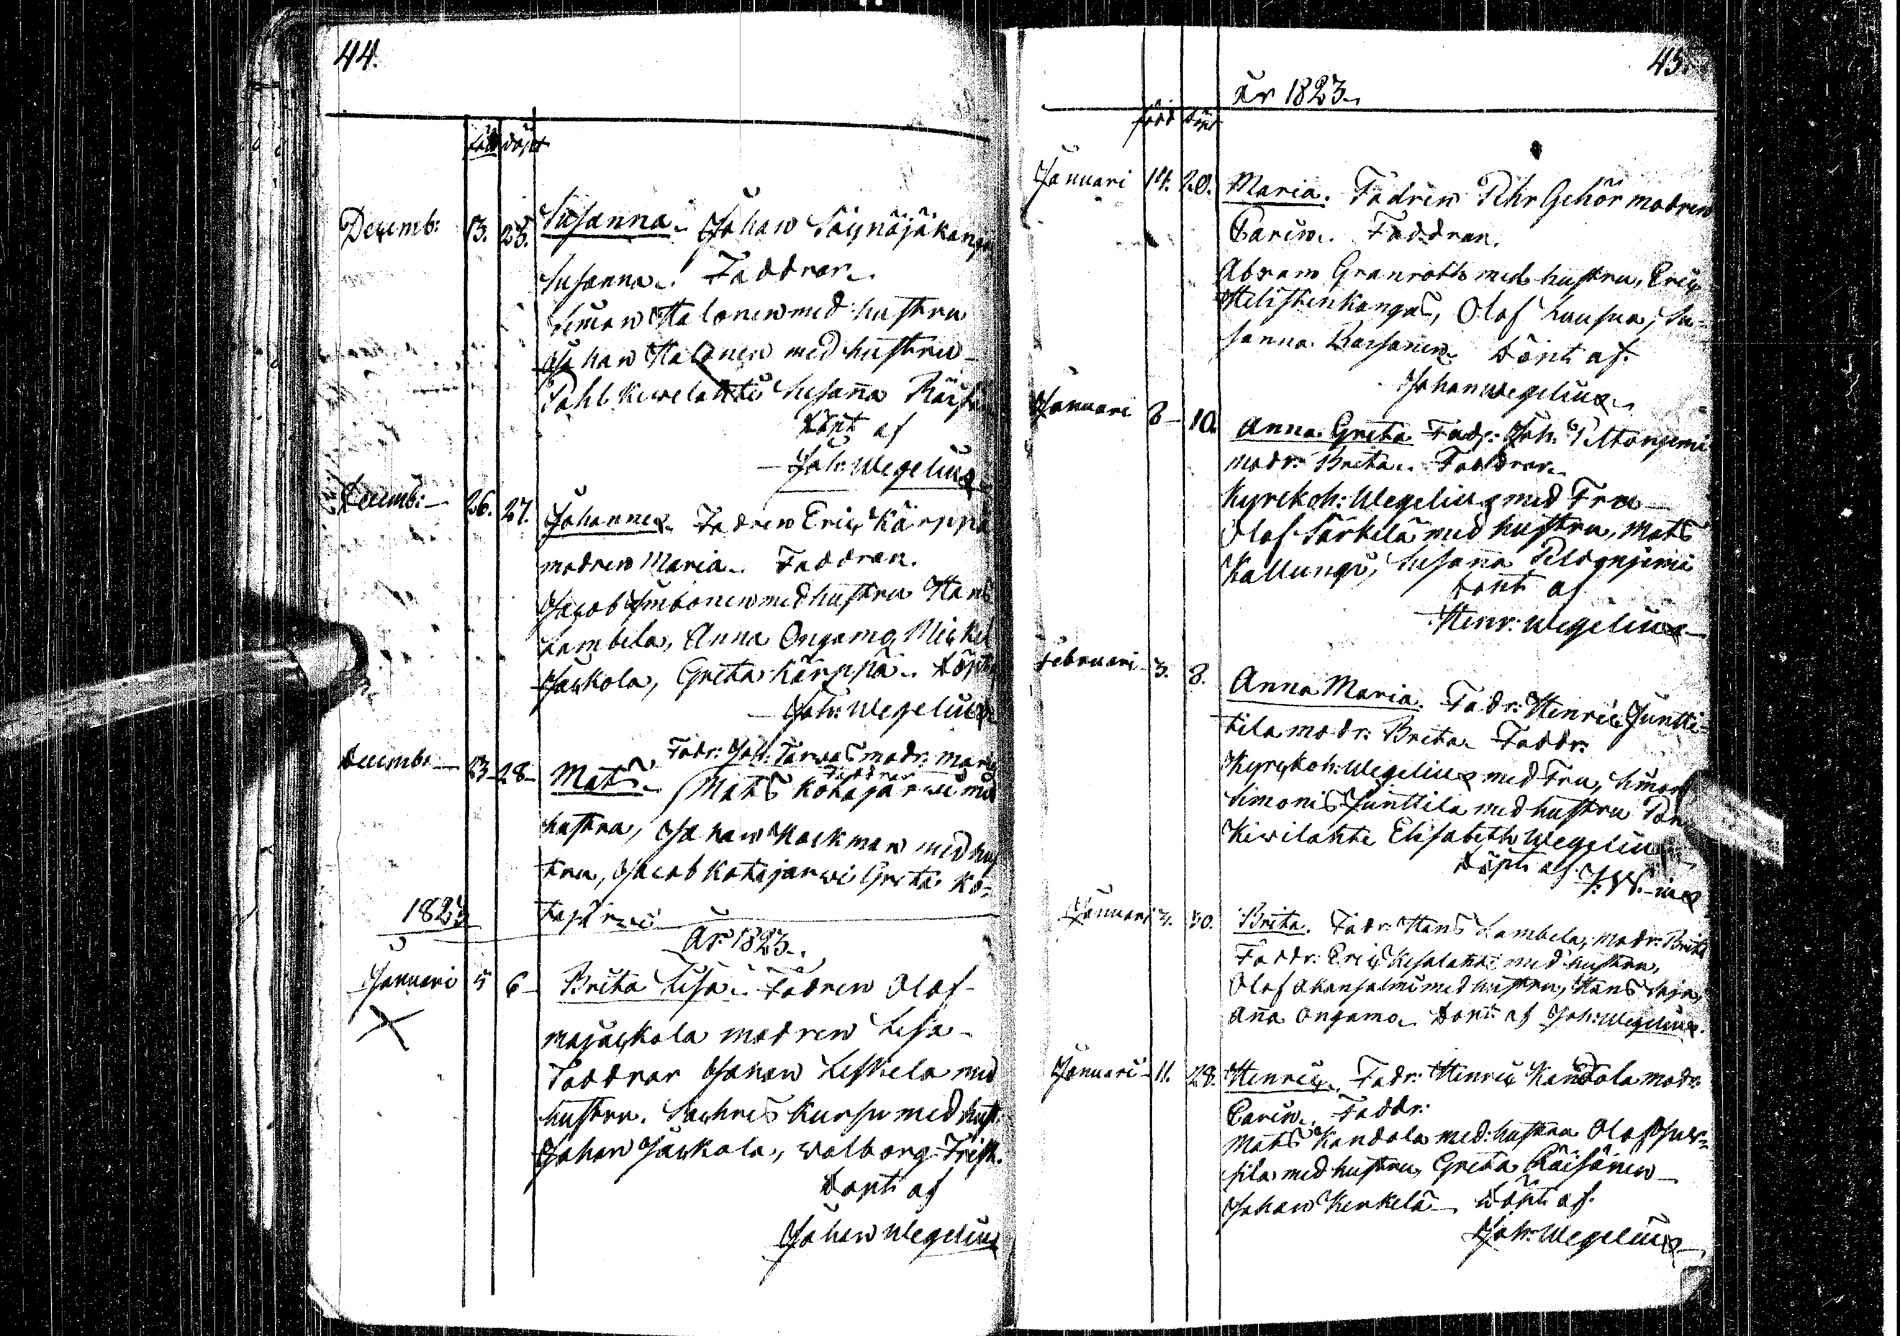 44.
född döpt
Decemb: 13. 25. Susanna. Johan Säynäjäkangas
Susanna. Faddrar.
Simon Halonen med hustru
Johan Halonen med hustru
Pahl Kiwelahti Susanna
Döpt af
Joh: Wegelius
Decemb: 26. 27. Johannes. Fadren Eric Kärppä
modren Maria. Faddrar.
Jacob med hustru Hans
Lambela, Anna Ongamo, Mickel
Jäskola, Greta Kärppä. Döpt
Joh: Wegelius
Fadr: Joh: Tarwas modr: Maria
Faddrar
Decemb: 23 28 Mats. Mats Kotajärwi med
hustru, Johan Hackman med hus
tru, Jacob Kotajärwi Greta Ko-
tajärwi
1823
År 1823.
Januari 5 6 Brita Lisa. Fadren Olof
majaskola modren Lisa
Faddrar Johan Leskela med
hustru. Zachris Kursu med hust.
Johan Jäskola, Walborg
Döpt af
Johan Wegelius
45.
år 1823.
född döpt
Januari 14. 20. Maria. Fadren Pehr Gehör modren
Carin. Faddrar.
Abram Granroth med hustru, Eric
Helistenkangas, Olof Kursua, Su-
sanna Raisanen. Döpt af.
Johan Wegelius.
Januari 8 10. Anna Greta Fadr: Joh: Peltoniemi
modr: Brita. Faddrar.
Kyrckoh: Wegelius med Fru
Olof Särkelä med hustru, Mats
Kallungi, Susanna Peldoniemi
Döpt af
Henr: Wegelius
Februari 3. 8. Anna Maria. Fadr: Henric Juntti-
tila modr: Brita. Faddr:
Kyrckoh: Wegelius med Fru, Simon
Simonis Junttila med hustru
Kiwilahti Elisabeth Wegelius
Döpt af J: W-ius
Januari 30. Brita. Fadr: Hans Lambela, modr: Brita
Faddr: Eric Kesälahti med hustru,
Olof Akanjalmi med hustru, Hans
Anna Ongamo. Döpt af Joh: Wegelius.
Januari 11. 28. Henric. Fadr: Henric Kandola modr:
Carin. Faddr:
Mats Kandola med hustru Olof
sila med hustru, Greta Räisänen
Johan Kerkelä. Döpt af.
Joh: Wegelius